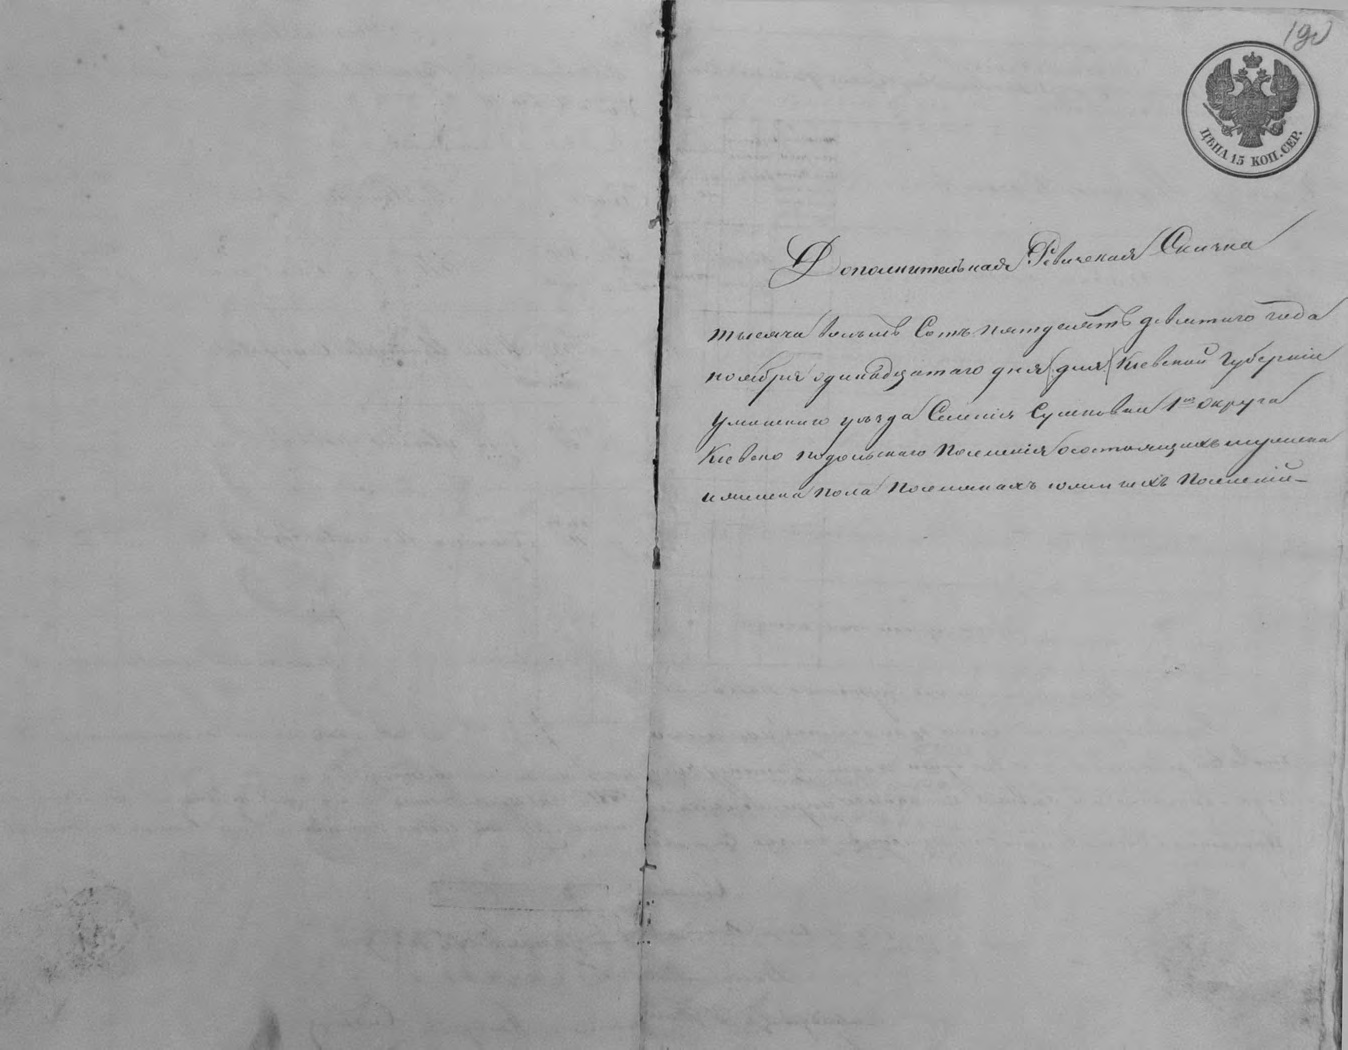 190
ЦѢНА 15 КОП. СЕР.
Дополнительная Ревиская Сказка
тысяча восемь Сотъ пятдесятъ девятаго года
ноября одинадцатаго дня (дня) Кіевской Губерніи
Уманскаго уѣзда Селенія 1го округа
Кіево подольскаго Поселенія о состоящихъ мужеска
и женска пола Поселянахъ Поселеній